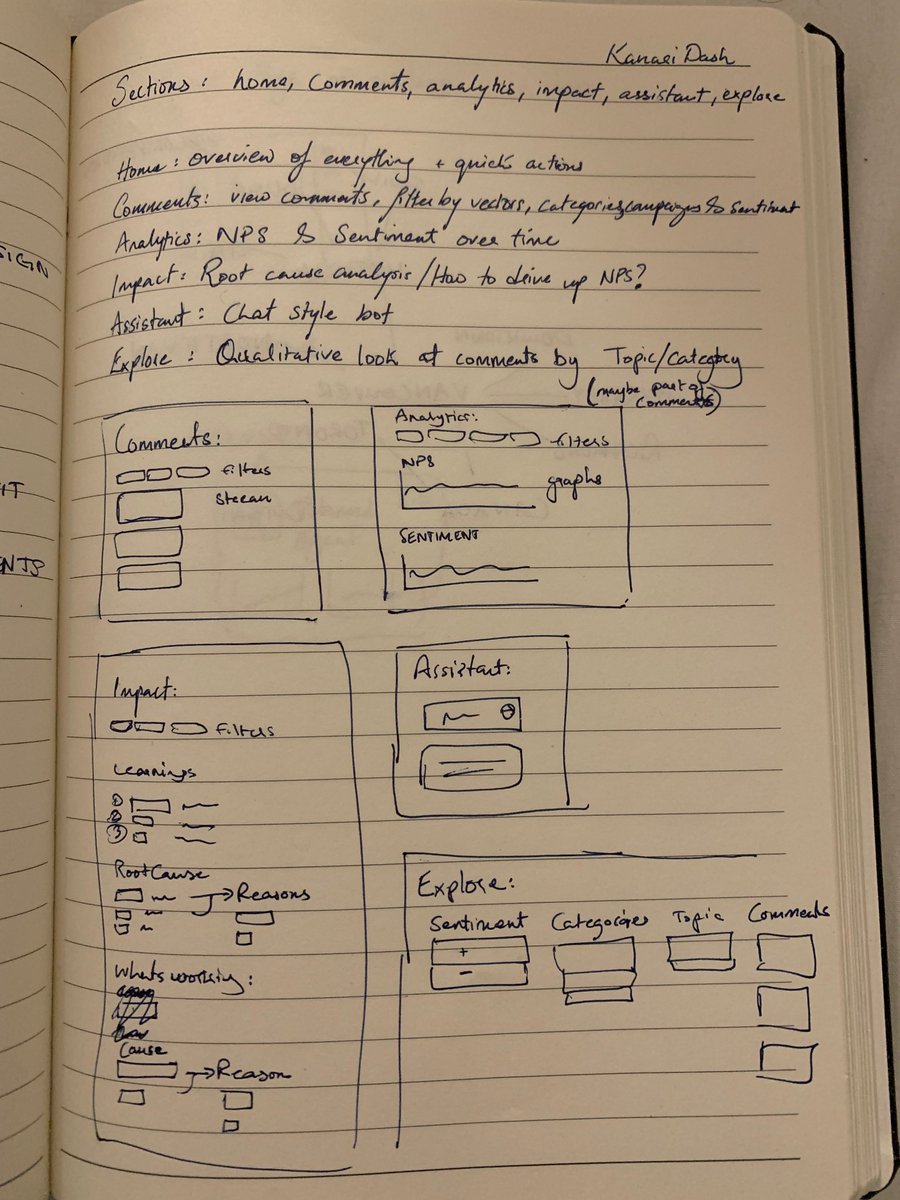 Kanari Dash
Sections: home, Comments, analytics, impact, assistant, explore
Home: overview of everything + quick actions
Comments: view comments, filter by vectors, categories, campaigns & Sentiment
Analytics: NPS & Sentiment over time
Impact: Root cause analysis/How to drive up NPS?
Assistant: Chat style bot
Explore: Qualitative look at comments by Topic/Category
(maybe part of
comments)
Comments:
filters
stream
Analytics:
filters
NPS
graphs
SENTIMENT
Impact:
filters
Learnings
1
2
3
Root Cause
→Reasons
Whats working:
Cause
→Reason
Assistant:
Explore:
Sentiment Categories Topic Comments
+
-
SIGN
NTS